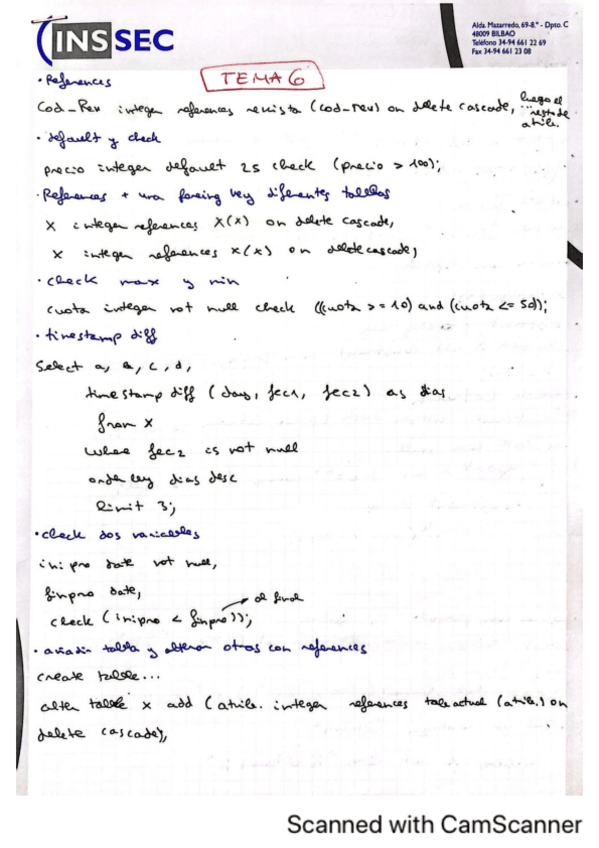 INSSEC
Alda. Mazarredo, 69-8.° - Dpto. C
48009 BILBAO
Teléfono 34-94 661 22 69
Fax 34-94 661 23 08
TEMA 6
• References
Cod_Rev integer references revista (cod_rev) on delete cascade, luego el resto de atrib.
• default y check
precio integer default 25 check (precio > 100);
• References + una foreing key diferentes tablas
X integer references X(X) on delete cascade,
X integer references X(X) on delete cascade;
• check max y min
cuota integer not null check ((cuota >= 10) and (cuota <= 50));
• timestamp diff
Select a, b, c, d,
timestamp diff (day, fec1, fec2) as dias
from X
where fec2 is not null
order by dias desc
limit 3;
• check dos variables
inipro date not null,
finpro date,
check (inipro < finpro)); → al final
• añadir tabla y alteran otros con references
create table...
alter table x add (atrib. integer references tabactual (atrib.) on
delete cascade);
Scanned with CamScanner